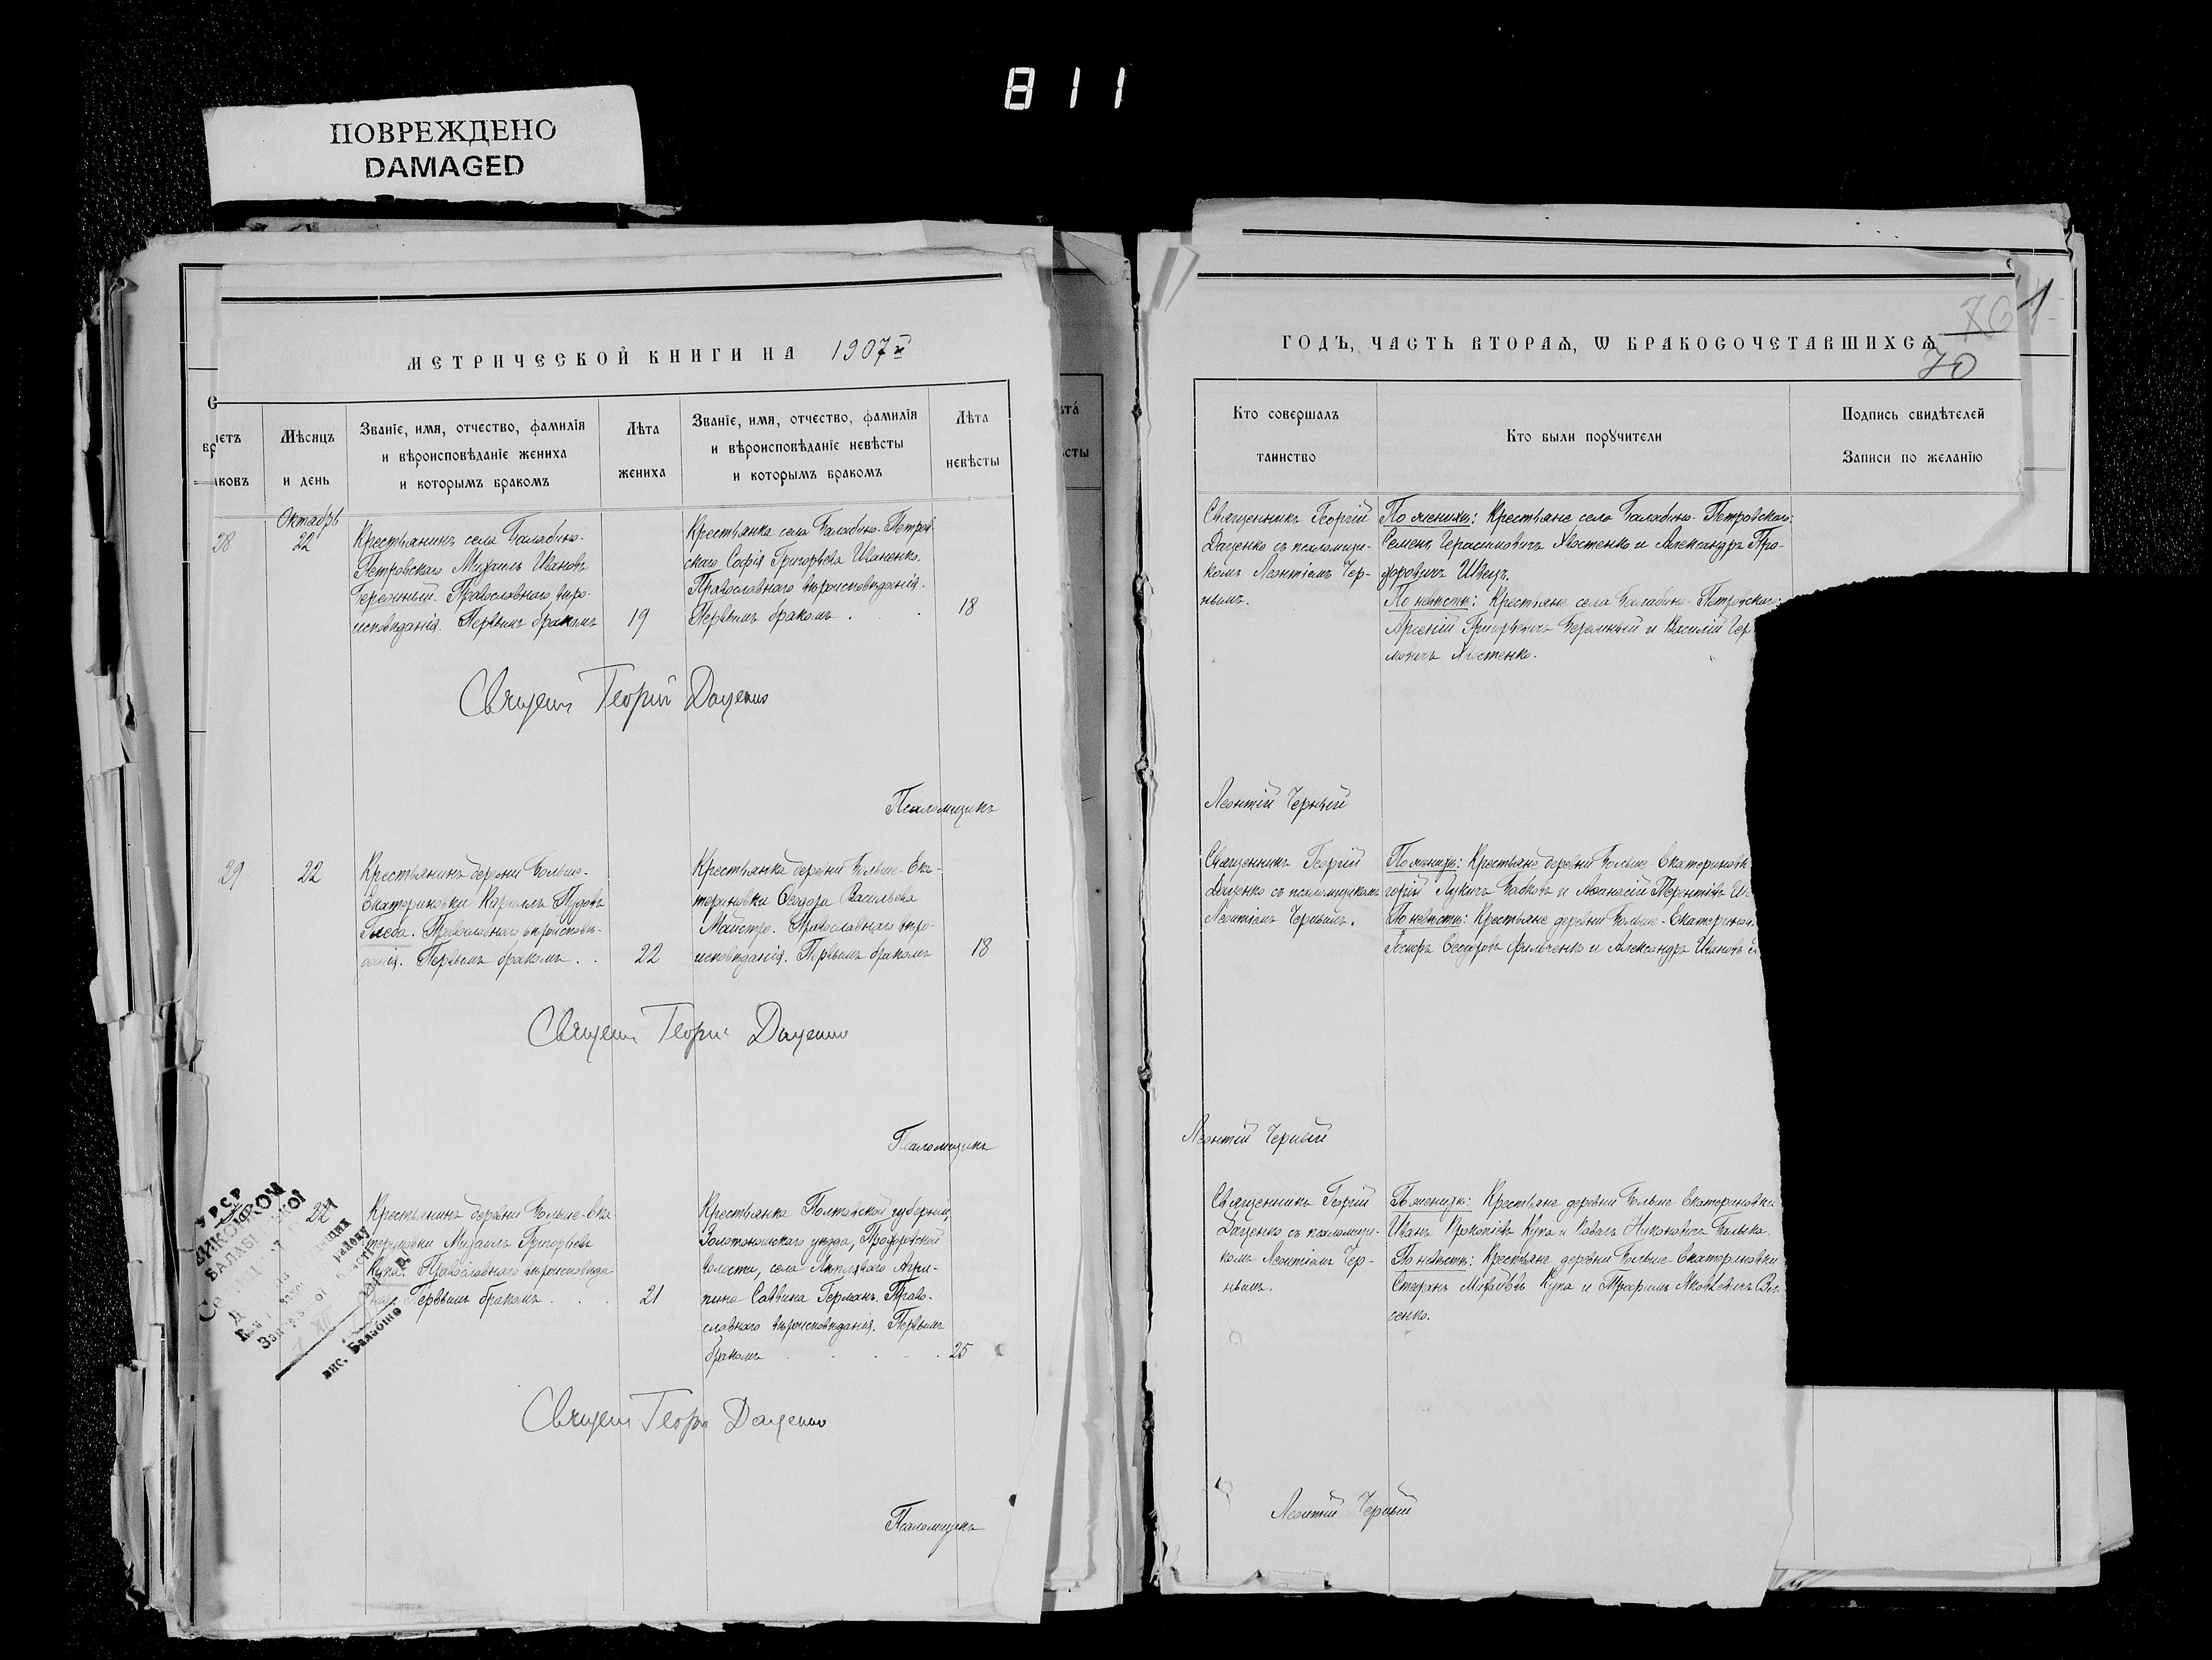 811
ПОВРЕЖДЕНО
DAMAGED
МЕТРИЧЕСКОЙ КНИГИ НА 1907й
Мѣсяцъ и день
Званіе, имя, отчество, фамилія и вѣроисповѣданіе жениха и которымъ бракомъ
Лѣта жениха
Званіе, имя, отчество, фамилія и вѣроисповѣданіе невѣсты и которымъ бракомъ
Лѣта невѣсты
Октябрь
28
22
Крестьянинъ села Балабино-
Петровскаго Михаилъ Ивановъ
Бережный. Православнаго вѣро-
исповѣданія. Первымъ бракомъ
19
Крестьянка села Балабино-Петров-
скаго Софія Григорьева Иваненко.
Православнаго вѣроисповѣданія.
Первымъ бракомъ.
18
Священ Георгій Даценко
Псаломщикъ
29
22
Крестьянинъ деревни Больше-
Екатериновки Кириллъ Пудовъ
Глеба. Православнаго вѣроисповѣ-
данія. Первымъ бракомъ.
22
Крестьянка деревни Больше-Ека-
териновки Ѳеодора Васильева
Майстро. Православнаго вѣро-
исповѣданія. Первымъ бракомъ
18
Священ Георгій Даценко
Псаломщикъ
22
Крестьянинъ деревни Больше-Ека
териновки Михаилъ Григорьевъ
Кука. Православнаго вѣроисповѣда
Первымъ бракомъ
21
Крестьянка Полтавской губерніи,
Золотоношскаго уѣзда,
волости, села Агри-
пина Саввина Германъ. Право-
славнаго вѣроисповѣданія. Первымъ
бракомъ
25
Священ Георгій Даценко
Псаломщикъ
УРСР
ВИКОНКОМ
вис. Балабіно
ГОДЪ, ЧАСТЬ ВТОРАѦ, Ѡ БРАКОСОЧЕТАВШИХСѦ
70
Кто совершалъ таинство
Кто были порꙋчители
Подпись свидѣтелей
Записи по желанію
Священникъ Георгій
Даценко съ псаломщи-
комъ Леонтіемъ Чер-
нымъ.
По женихѣ: Крестьяне села Балабино-Петровскаго:
Семенъ Герасимовичъ Хвостенко и Александръ Про-
хоровичъ Швецъ.
По невѣстѣ: Крестьяне села Балабино-Петровскаго:
Арсеній Григорьевичъ Бережный и Василій Гер
мовичъ Хвостенко.
Леонтій Черный
Священникъ Георгій
Даценко съ псаломщикомъ
Леонтіемъ Чернымъ.
По женихѣ: Крестьяне деревни Больше-Екатериновк
горій Лукичъ Бабковъ и Аѳанасій Терентіевъ
По невѣстѣ: Крестьяне деревни Больше-Екатеринов
Ѳеодоровъ Фильченко и Александръ Ивановъ
Леонтій Черный
Священникъ Георгій
Даценко съ псаломщи-
комъ Леонтіемъ Чер-
нымъ.
По женихѣ: Крестьяне деревни Больше-Екатериновки
Иванъ Прокопіевъ Кука и Никоновичъ Балыка.
По невѣстѣ: Крестьяне деревни Больше-Екатериновки
Стефанъ Кука и Трофимъ Яковлевичъ
сенко.
Леонтій Черный